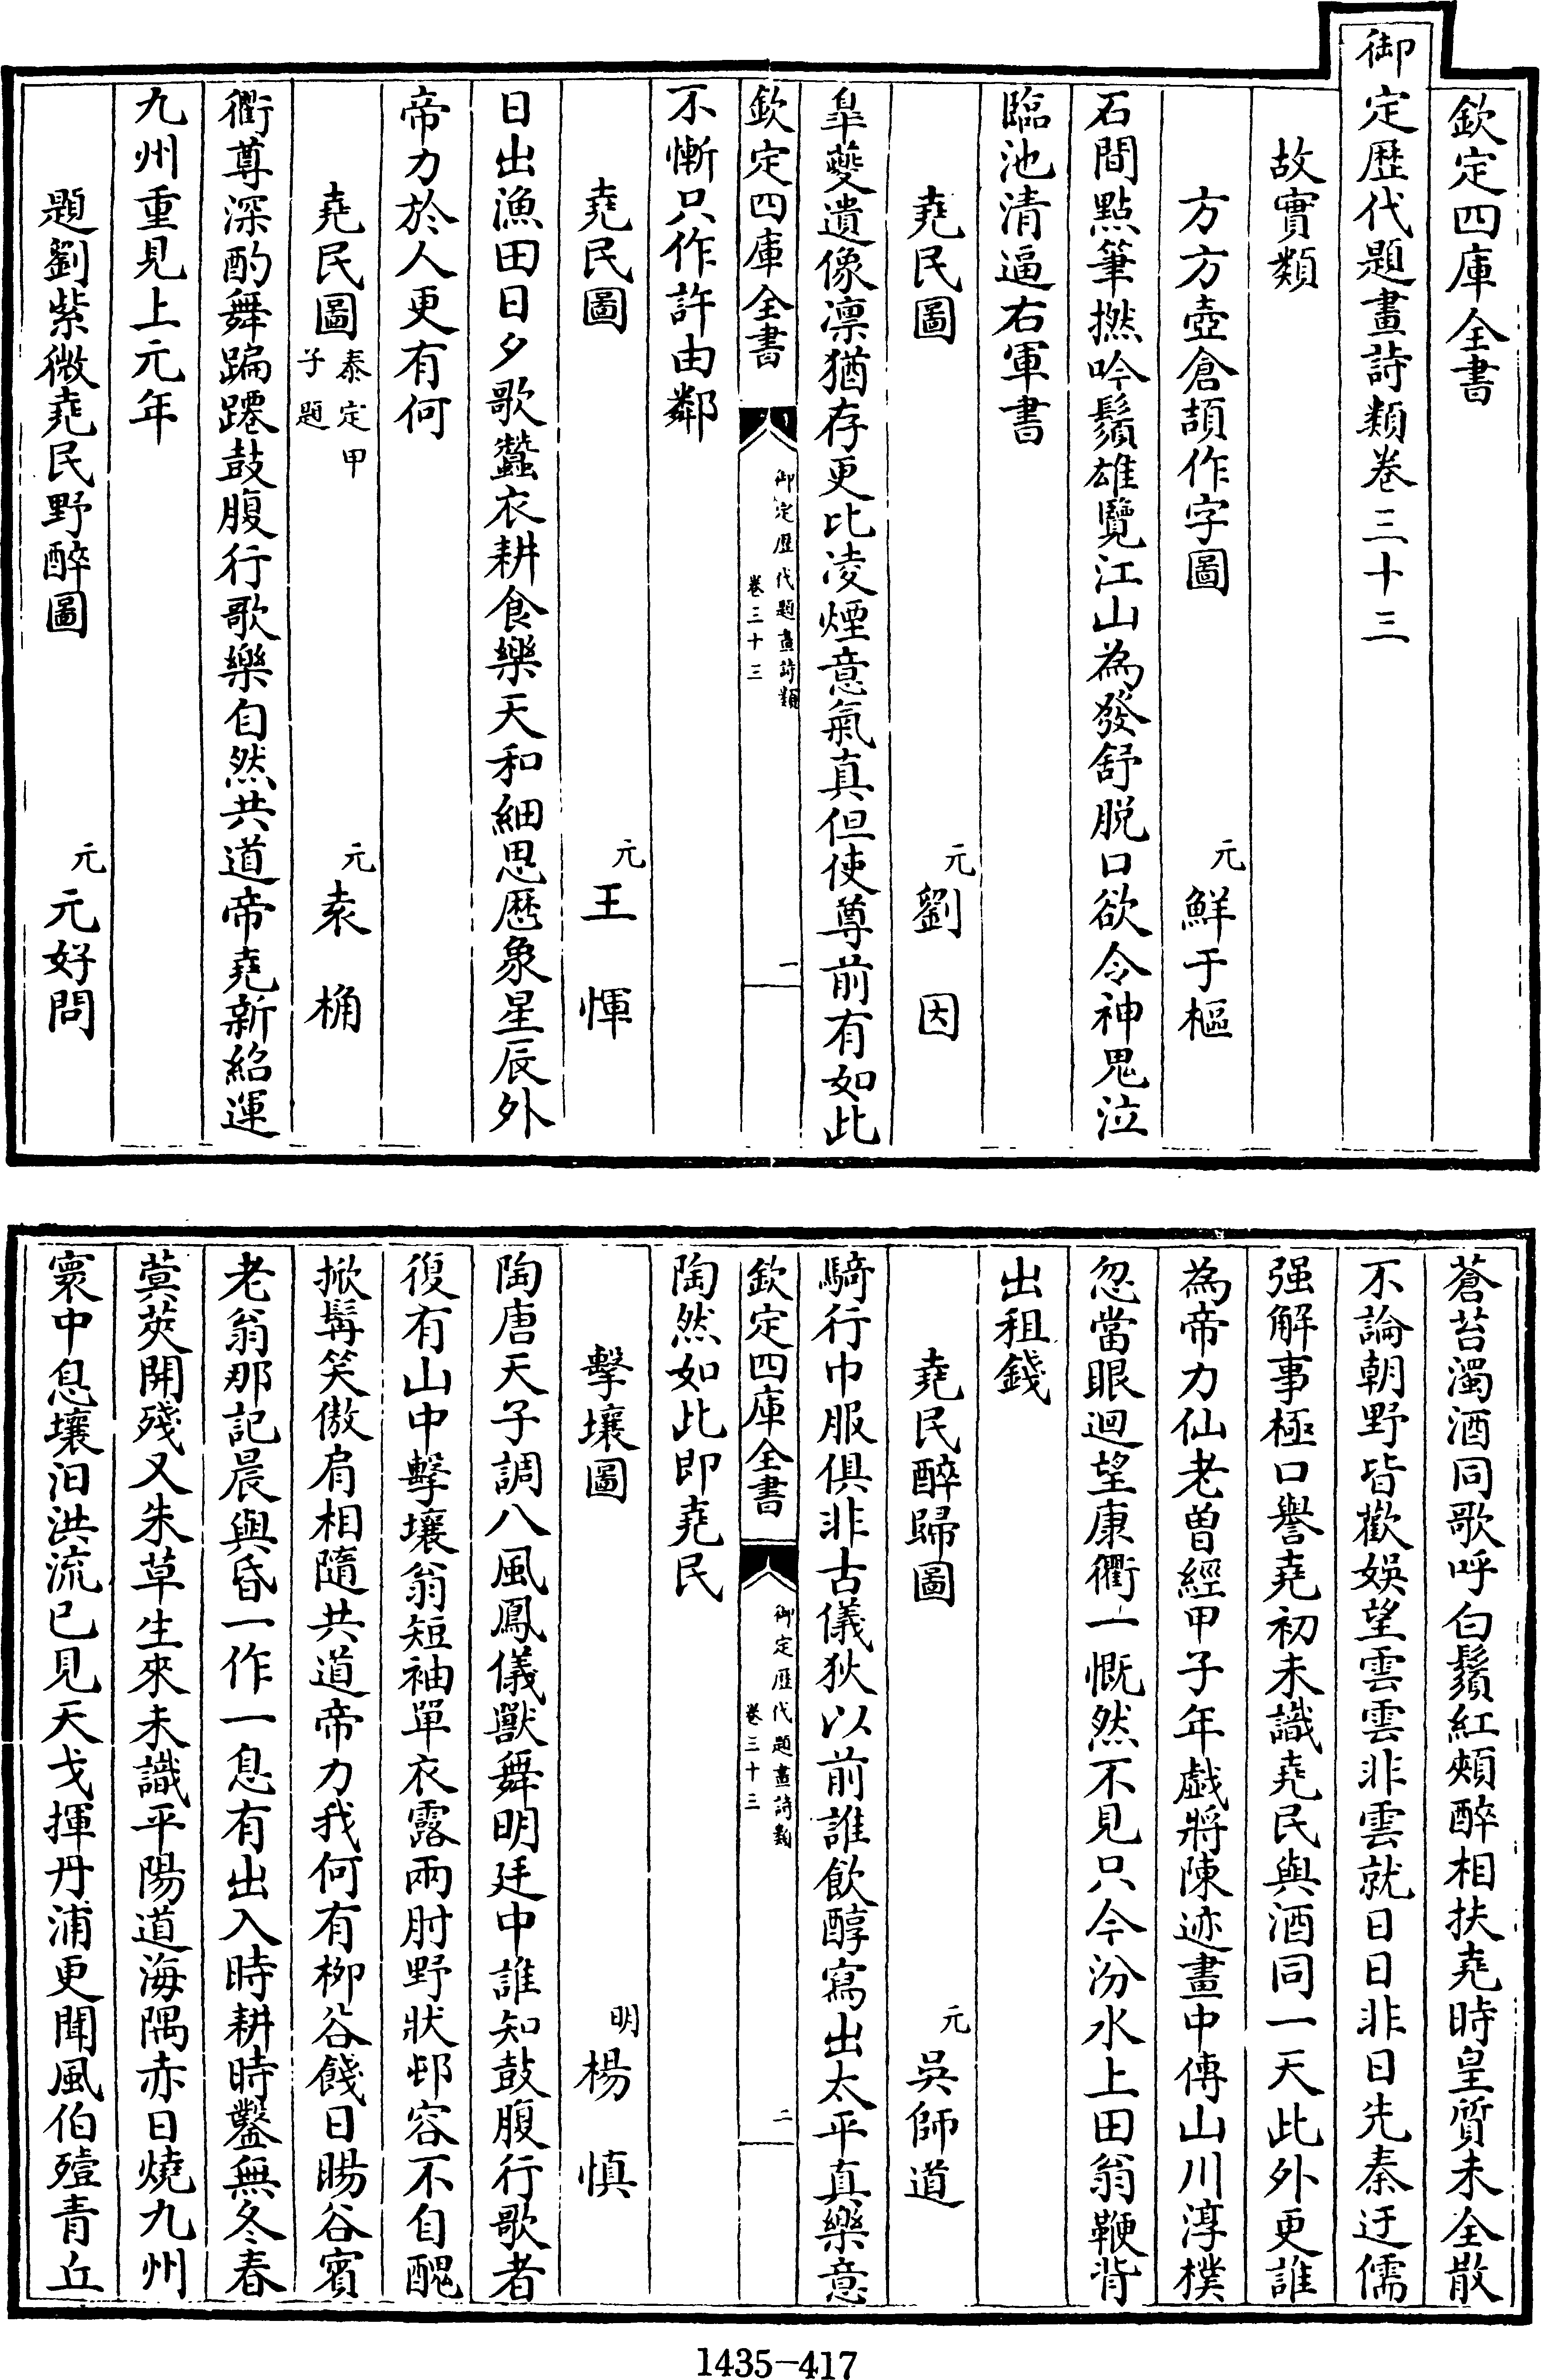 欽定四庫全書
御定歴代題畫詩類卷三十三
故實類
方方壺倉頡作字圖 元 鮮于樞
石間點筆撚吟鬚雄覽江山為發舒脱口欲令神鬼泣
臨池清逼右軍書
堯民圖 元 劉因
臯夔遺像凛猶存更比凌煙意氣真但使尊前有如此
欽定四庫全書 御定歴代題畫詩類 卷三十三 一
不慚只作許由鄰
堯民圖 元 王惲
日出漁田日夕歌蠶衣耕食樂天和細思歴象星辰外
帝力於人更有何
堯民圖 泰定甲子題 元 袁桷
衢尊深酌舞蹁躚鼓腹行歌樂自然共道帝堯新紹運
九州重見上元年
題劉紫微堯民野醉圖 元 元好問
蒼苔濁酒同歌呼白鬚紅頰醉相扶堯時皇質未全散
不論朝野皆歡娛望雲雲非雲就日日非日先秦迂儒
强解事極口譽堯初未識堯民與酒同一天此外更誰
為帝力仙老曾經甲子年戯將陳迹畫中傳山川淳樸
忽當眼迴望康衢一慨然不見只今汾水上田翁鞭背
出租錢
堯民醉歸圖 元 吳師道
騎行巾服俱非古儀狄以前誰飲醇寫出太平真樂意
欽定四庫全書 御定歴代題畫詩類 卷三十三 二
陶然如此即堯民
擊壤圖 明 楊慎
陶唐天子調八風鳳儀獸舞明廷中誰知鼓腹行歌者
復有山中擊壤翁短袖單衣露兩肘野狀邨容不自醜
掀髯笑傲肩相隨共道帝力我何有柳谷餞日暘谷賓
老翁那記晨與昏一作一息有出入時耕時鑿無冬春
蓂莢開殘又朱草生來未識平陽道海隅赤日燒九州
寰中息壤汩洪流已見天戈揮丹浦更聞風伯殪青丘
1435-417